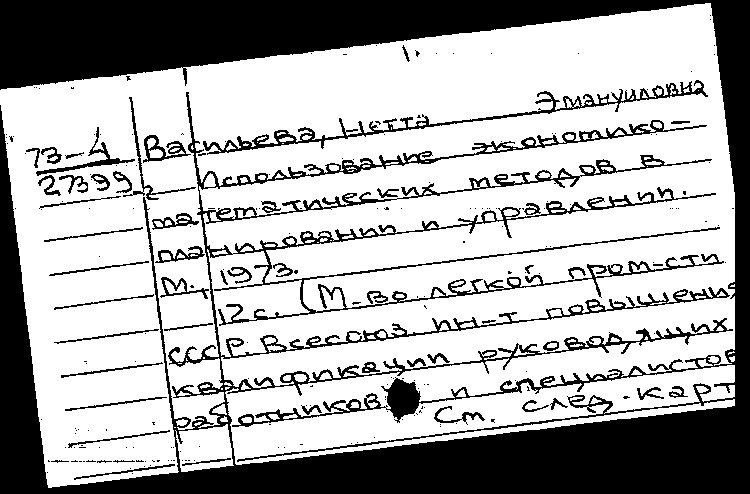 73-4
27399-2
Васильева, Нетта Эмануиловна
Использование экономико-
математических методов в
планировании и управлении.
М., 1973.
12с. (М-во легкой пром-сти
СССР. Всесоюз. ин-т повышения
квалификации руковод,ящих
работников и специалистов
См. след. карт